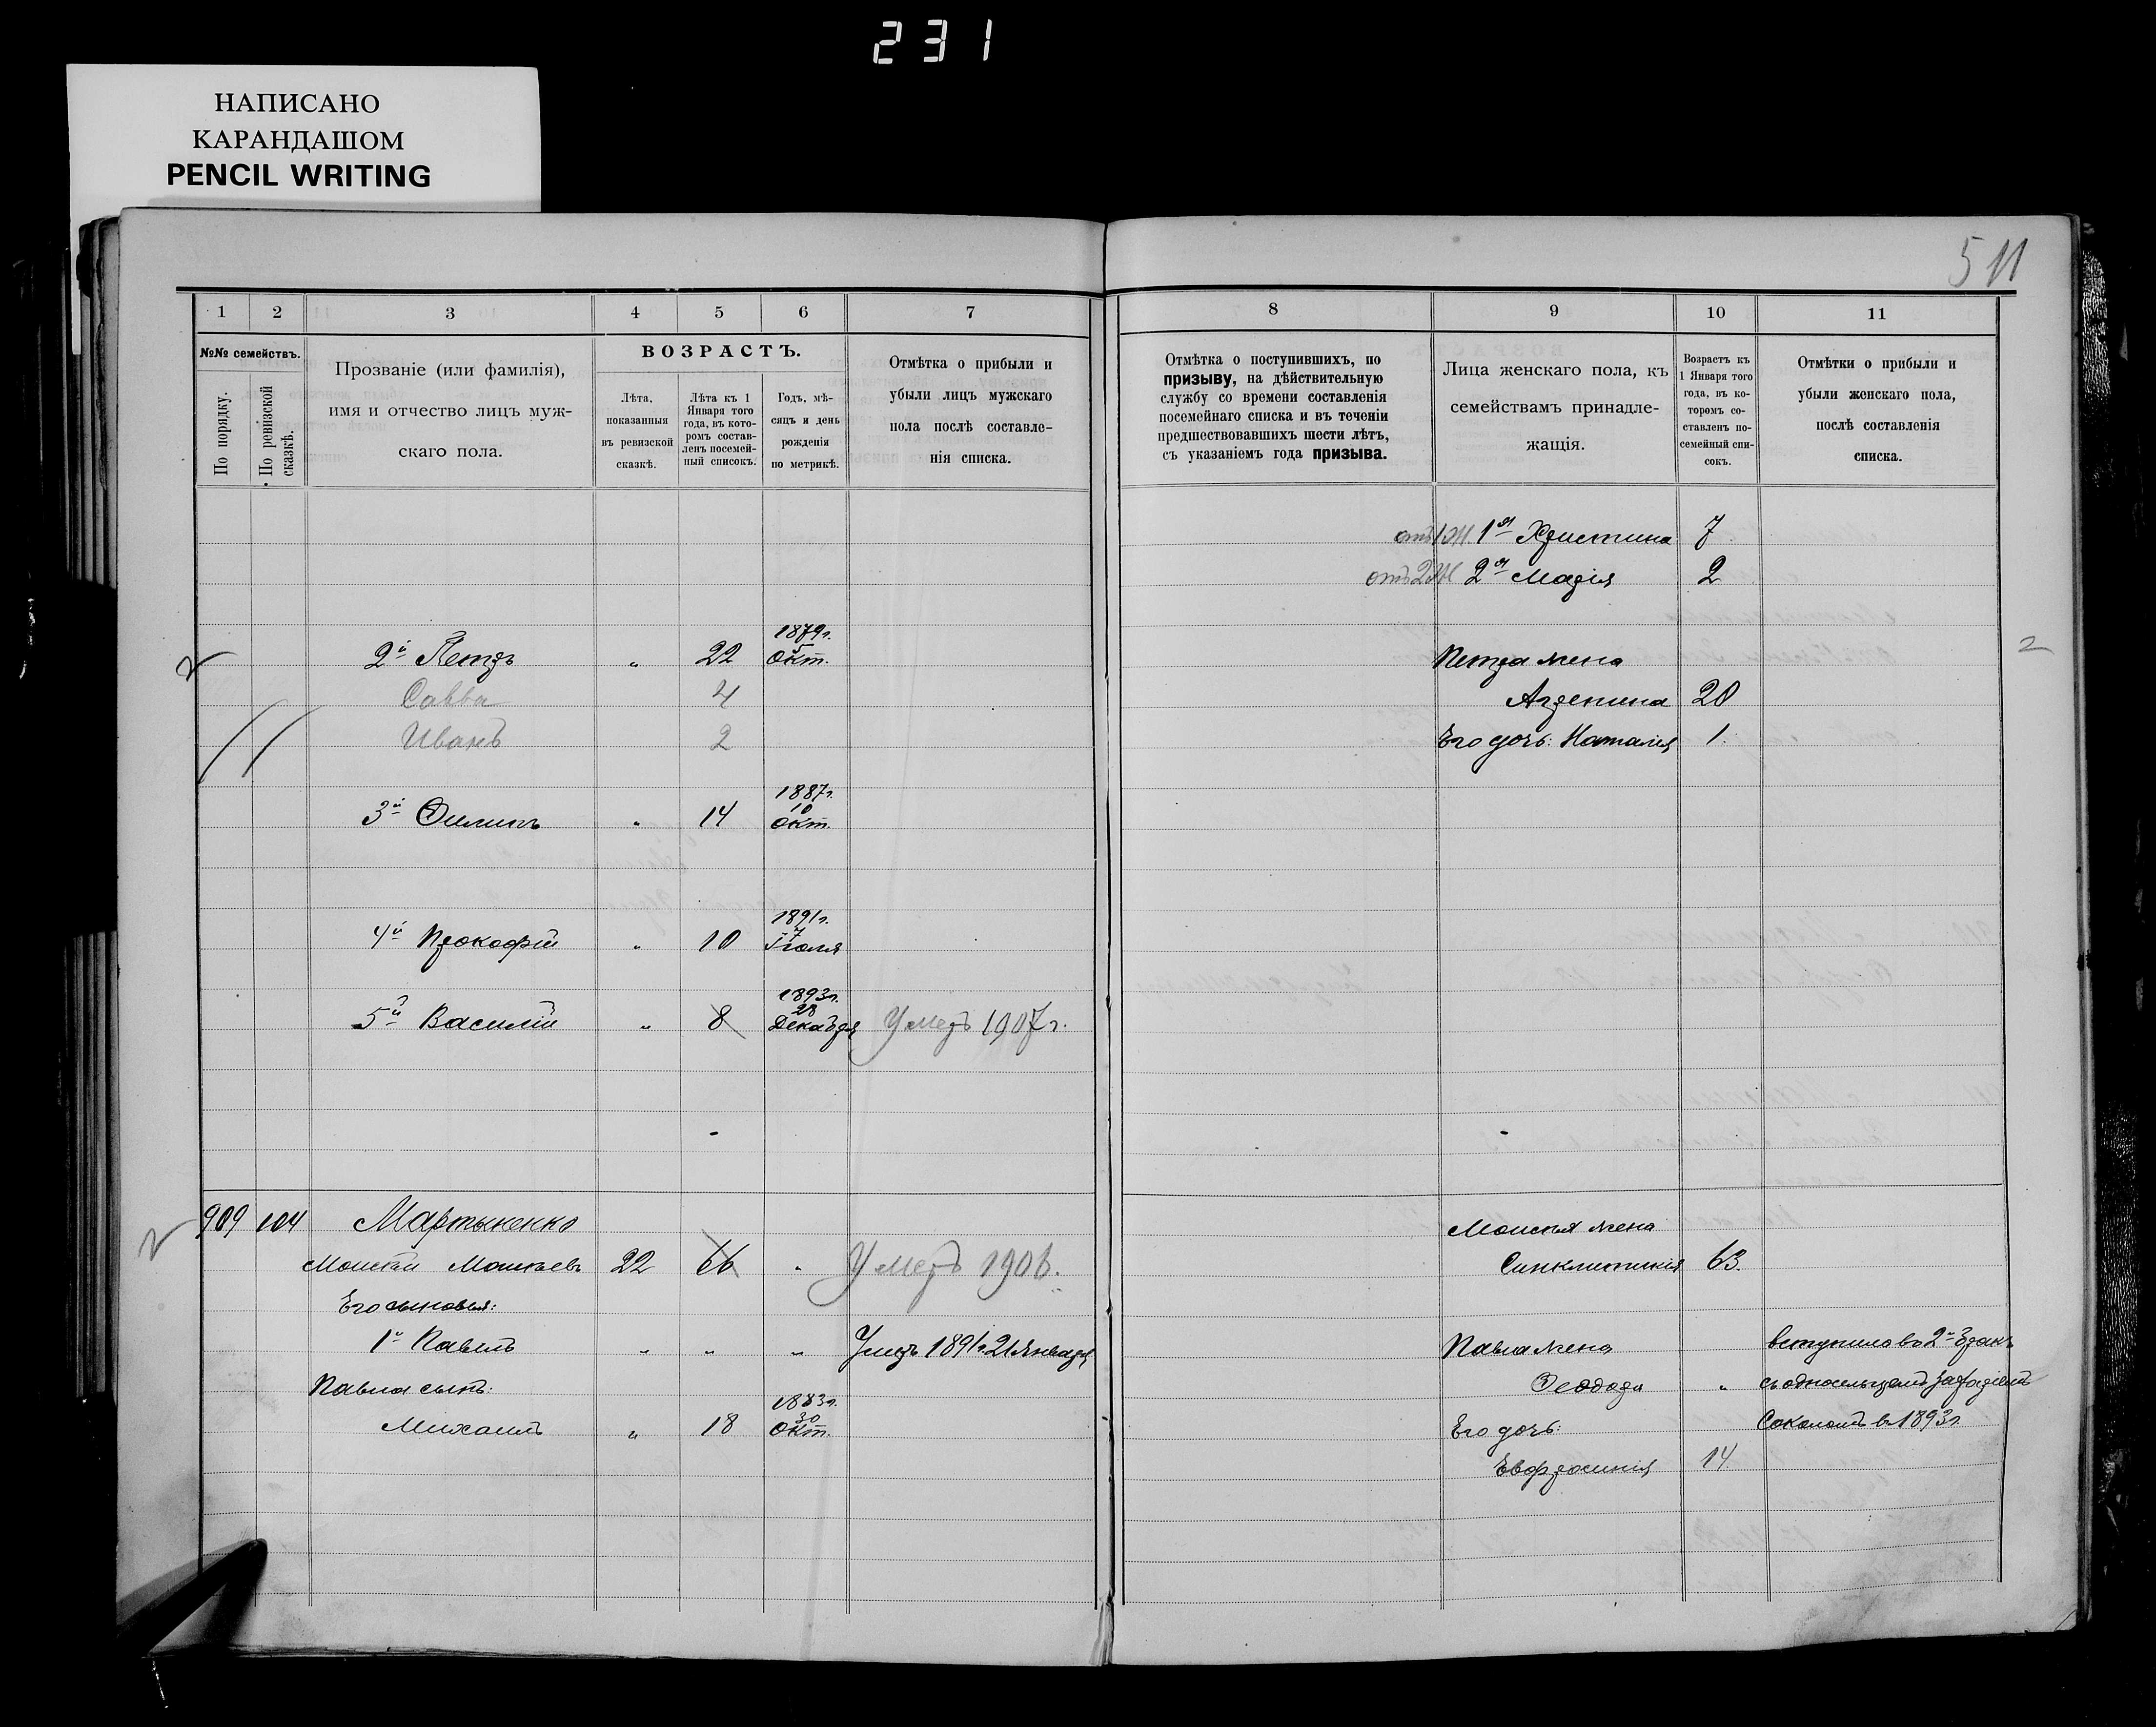 231
НАПИСАНО
КАРАНДАШОМ
PENCIL WRITING
511
1 2 3 4 5 6 7 8 9 10 11
№№ семействъ.
По порядку.
По ревизской сказкѣ.
Прозваніе (или фамилія),
имя и отчество лицъ муж-
скаго пола.
ВОЗРАСТЪ.
Лѣта,
показанныя
въ ревизской
сказкѣ.
Лѣта къ 1
Января того
года, въ кото-
ромъ состав-
ленъ посемей-
ный списокъ.
Годъ, мѣ-
сяцъ и день
рожденія
по метрикѣ.
Отмѣтка о прибыли и
убыли лицъ мужскаго
пола послѣ составле-
нія списка.
Отмѣтка о поступившихъ, по
призыву, на дѣйствительную
службу со времени составленія
посемейнаго списка и въ теченіи
предшествовавшихъ шести лѣтъ,
съ указаніемъ года призыва.
Лица женскаго пола, къ
семействамъ принадле-
жащія.
Возрастъ къ
1 Января того
года, въ ко-
торомъ со-
ставленъ по-
семейный спи-
сокъ.
Отмѣтки о прибыли и
убыли женскаго пола,
послѣ составленія
списка.
отъ 1 Ж 1я Христина 7
отъ 2 Ж 2я Марія 2
1879г.
2й Петръ " 22 5 Окт. Петра жена
Савва 4 Агрепина 20
Иванъ 2 Его дочь: Наталія 1.
1887г.
10
3й Филипъ " 14 Окт.
1891г.
7
4й Прокофій " 10 Іюля
1893г.
28
5й Василій " 8 Декабря Умеръ 1907г.
909 104 Мартыненко Моисея жена
Моисей Моисѣевъ 22 66 " Умеръ 1906. Синклитикія 63.
Его сыновья:
1й Павелъ " " " Умеръ 1891г. 21 Января Павла жена " вступила во 2й бракъ
Павла сынъ: Феодора " съ односельцемъ Захаріемъ
1883г.
30
Михаилъ " 18 Окт. Его дочь: Соколомъ в 1893г.
Евфросинія 14.